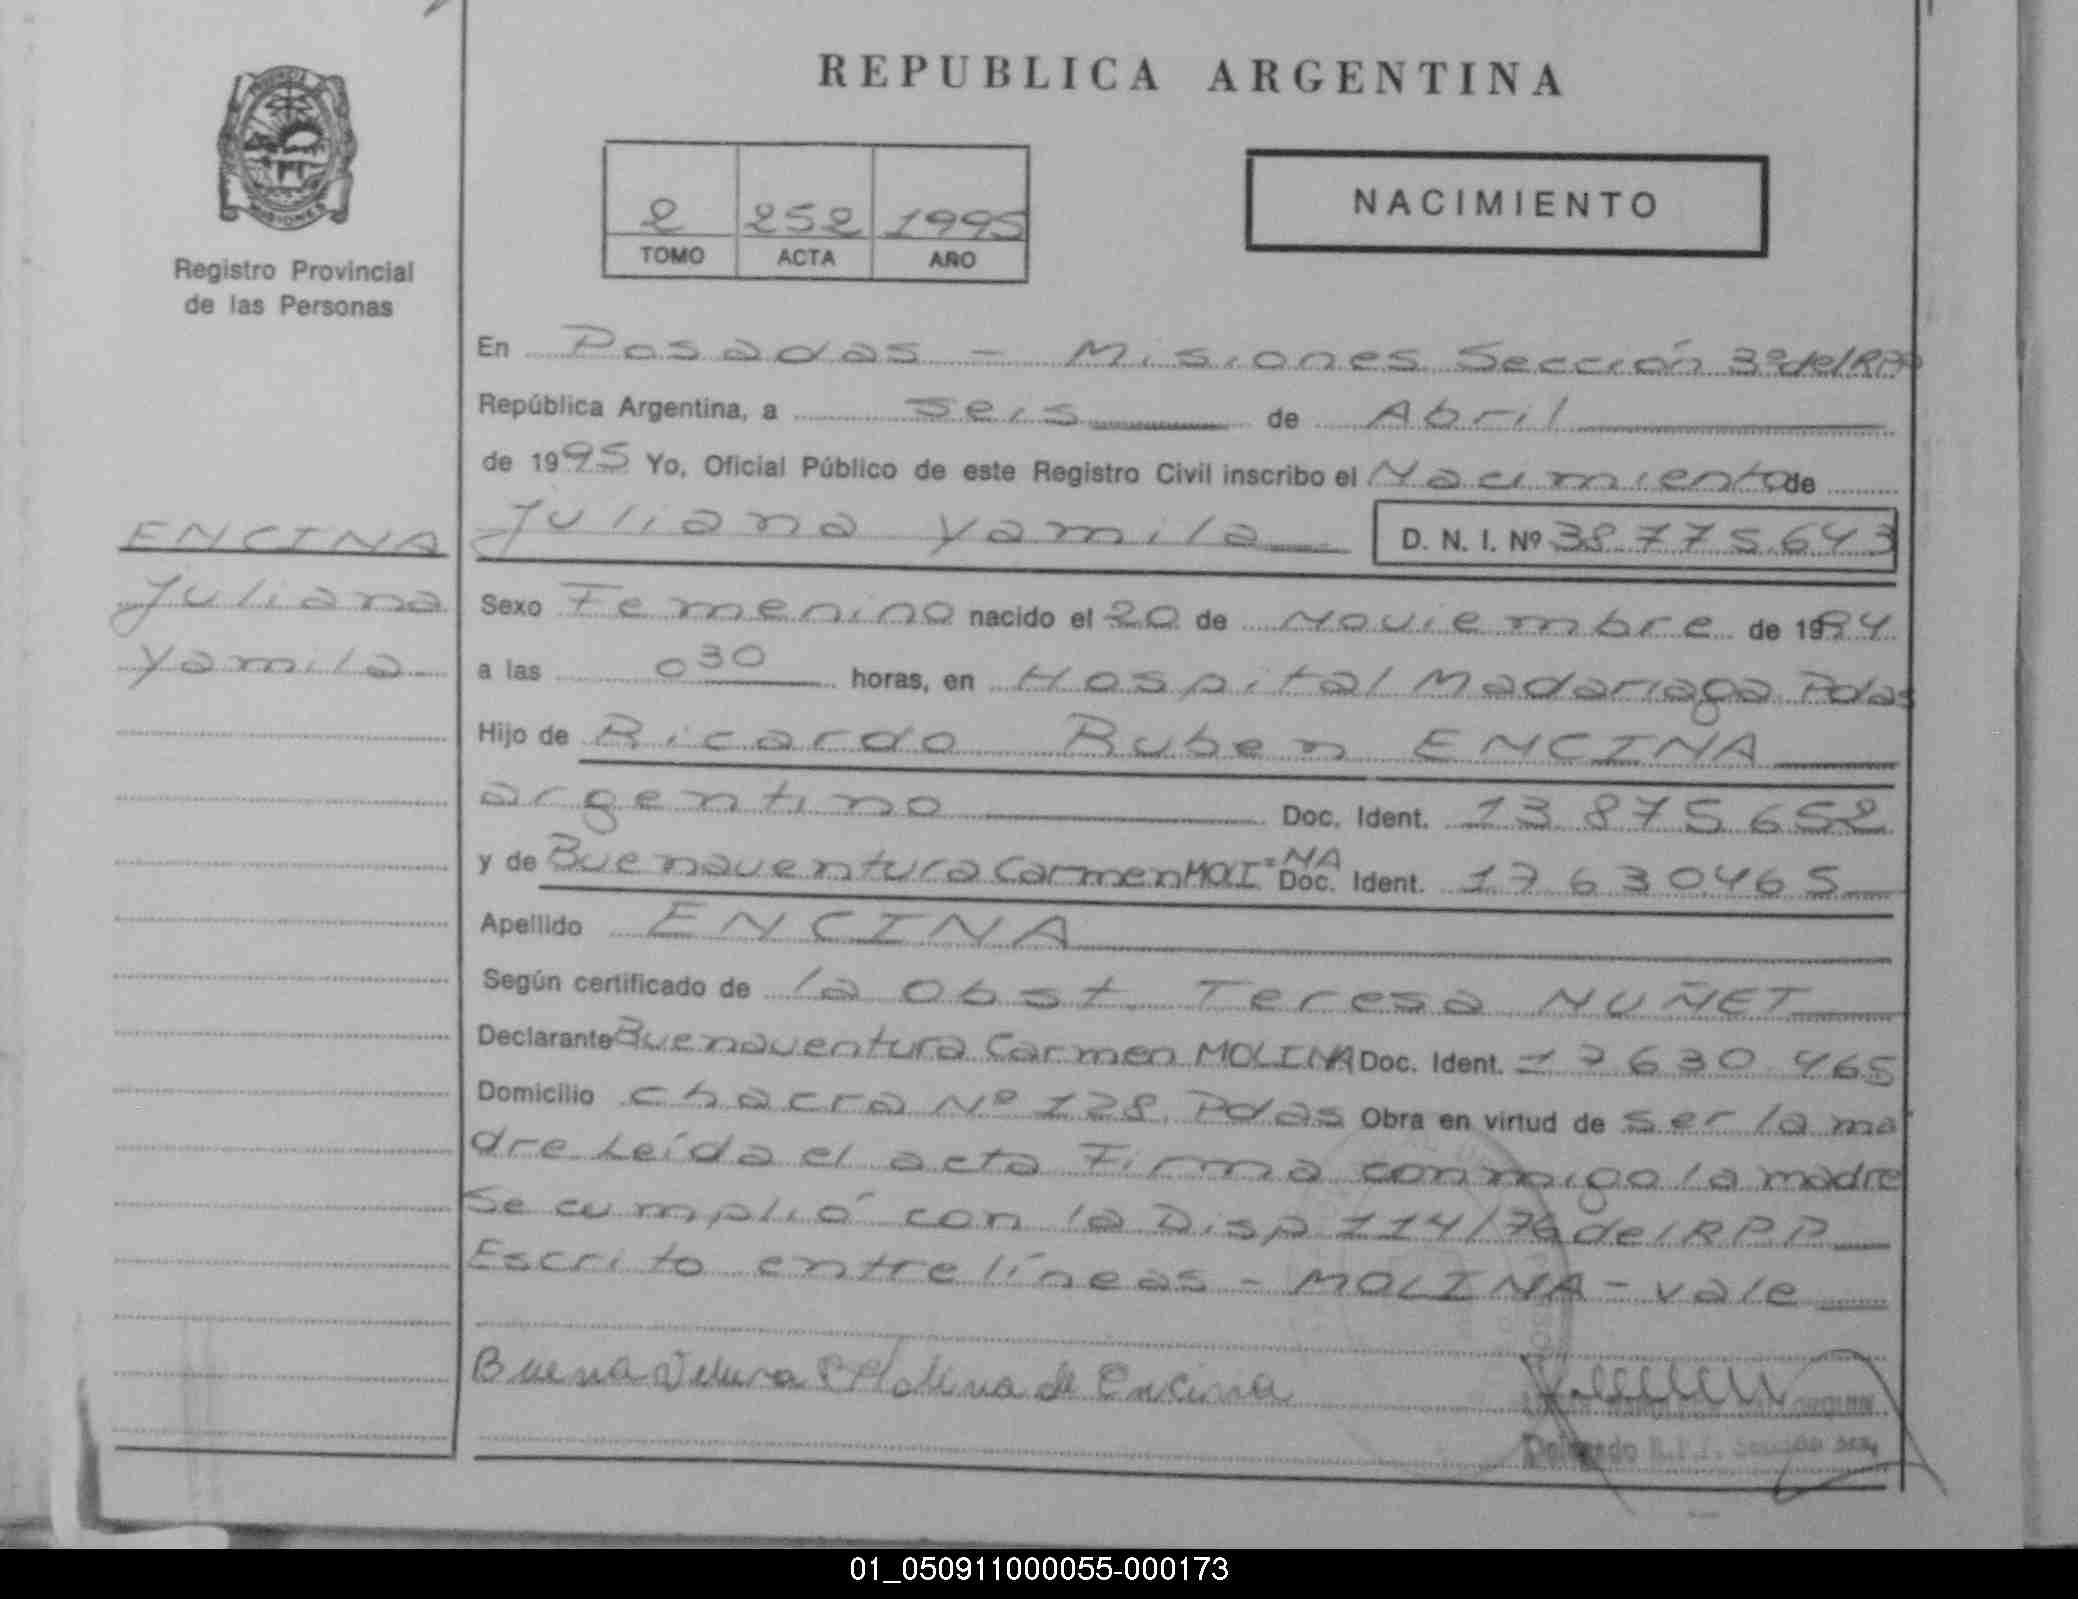 REPUBLICA ARGENTINA
PROVINCIA
MISIONES
Registro Provincial
de las Personas
2 252 1995
TOMO ACTA AÑO
NACIMIENTO
En Posadas - Misiones Sección 3º del RPP
República Argentina, a seis de Abril
de 1995 Yo, Oficial Público de este Registro Civil inscribo el Nacimiento de
Juliana Yamila D. N. I. Nº 38775643
ENCINA
Juliana
Yamila
Sexo Femenino nacido el 20 de Noviembre de 1994
a las 0 30 horas, en Hospital Madariaga Pdas
Hijo de Ricardo Ruben ENCINA
argentino Doc. Ident. 13875652
y de Buenaventura Carmen MOLI=NA Doc. Ident. 17630465
Apellido ENCINA
Según certificado de la Obst Teresa NUÑET
Declarante Buenaventura Carmen MOLINA Doc. Ident. 17630.465
Domicilio chacra Nº 128 Pdas Obra en virtud de ser la ma
dre Leída el acta Firma conmigo la madre
Se cumplió con la Disp 114/76 del RPP
Escrito entre líneas - MOLINA - vale
Molina de Encina
Delegado R.P.P. Sección 3ra,
01_050911000055-000173